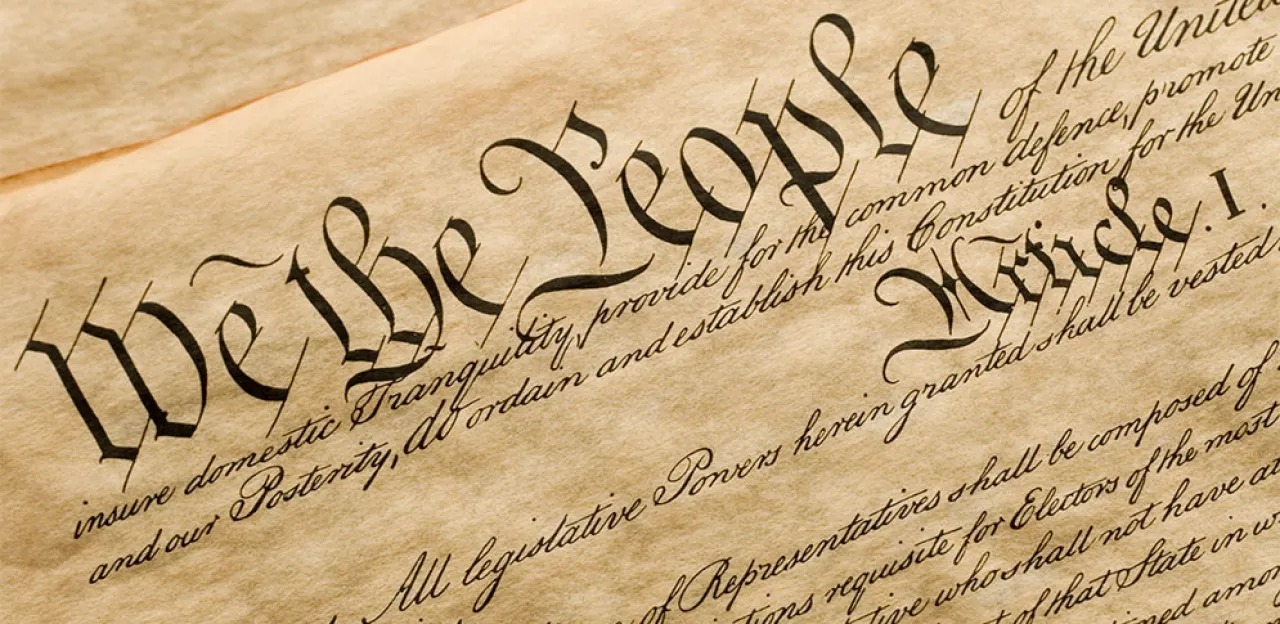 We the People of the United
insure domestic Tranquility, provide for the common defence, promote
and our Posterity, do ordain and establish this Constitution for the Un
Article. I.
All legislative Powers herein granted shall be vested
of Representatives shall be composed of
tions requisite for Electors of the most
tive who shall not have at
of that State in w
among